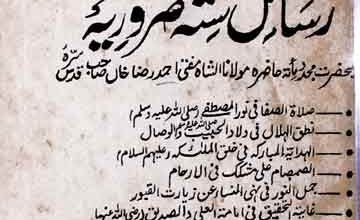 رسائل ستہ ضروریہ
حضرت مجدد مأتہ حاضرہ مولانا الشاہ مفتی احمد رضا خاں صاحب قدس سرہ
صلاۃ الصفا فی نور المصطفے (صلی اللہ علیہ وسلم)
نطق الہلال فی ولاد الحبیب والوصال
الہدایۃ المبارکہ فی خلق الملئکہ (علیہم السلام)
الصمصام علی مشکک فی آیۃ الارحام
جمل النور فی نہی النساء عن زیارت القبور
غایۃ التحقیق فی امامۃ العلی والصدیق (رضی اللہ عنہما)